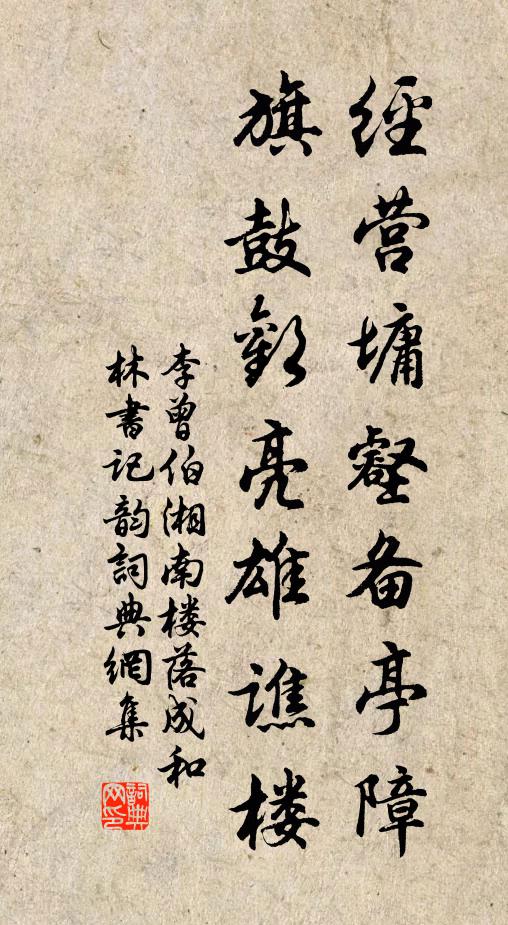 經营墉壑备亭障
旗鼓歡亮雄譙楼
李曾伯湘南楼落成和
林書记韵詞典網集
詞典网印